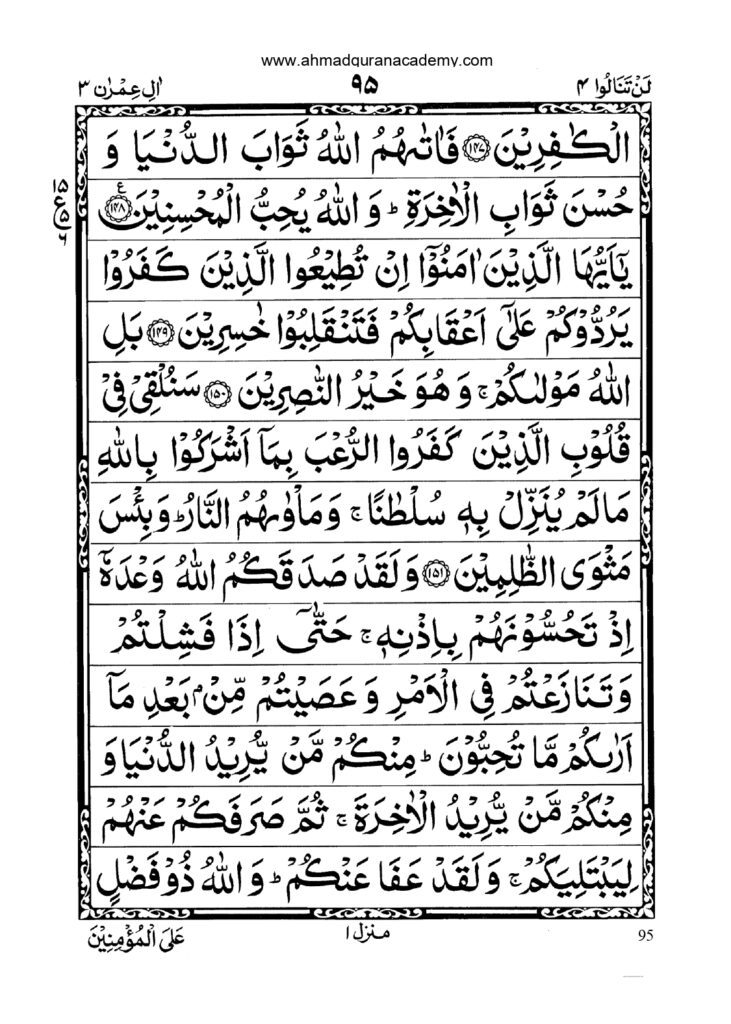 www.ahmadquranacademy.com
لَنْ تَنَالُوا ۴ ۹۵ اٰلِ عِمْرٰن ۳
الْكٰفِرِیْنَ ﴿۱۴۷﴾ فَاٰتٰىهُمُ اللّٰهُ ثَوَابَ الدُّنْیَا وَ
حُسْنَ ثَوَابِ الْاٰخِرَةِ ؕ وَ اللّٰهُ یُحِبُّ الْمُحْسِنِیْنَ ﴿۱۴۸﴾ ع
۱۵
ع ۵
۶
یٰۤاَیُّهَا الَّذِیْنَ اٰمَنُوْۤا اِنْ تُطِیْعُوا الَّذِیْنَ كَفَرُوْا
یَرُدُّوْكُمْ عَلٰۤی اَعْقَابِكُمْ فَتَنْقَلِبُوْا خٰسِرِیْنَ ﴿۱۴۹﴾ بَلِ
اللّٰهُ مَوْلٰىكُمْ ۚ وَ هُوَ خَیْرُ النّٰصِرِیْنَ ﴿۱۵۰﴾ سَنُلْقِیْ فِیْ
قُلُوْبِ الَّذِیْنَ كَفَرُوا الرُّعْبَ بِمَاۤ اَشْرَكُوْا بِاللّٰهِ
مَا لَمْ یُنَزِّلْ بِهٖ سُلْطٰنًا ۚ وَ مَاْوٰىهُمُ النَّارُ ؕ وَ بِئْسَ
مَثْوَی الظّٰلِمِیْنَ ﴿۱۵۱﴾ وَ لَقَدْ صَدَقَكُمُ اللّٰهُ وَعْدَهٗۤ
اِذْ تَحُسُّوْنَهُمْ بِاِذْنِهٖ ۚ حَتّٰۤی اِذَا فَشِلْتُمْ
وَ تَنَازَعْتُمْ فِی الْاَمْرِ وَ عَصَیْتُمْ مِّنْۢ بَعْدِ مَاۤ
اَرٰىكُمْ مَّا تُحِبُّوْنَ ؕ مِنْكُمْ مَّنْ یُّرِیْدُ الدُّنْیَا وَ
مِنْكُمْ مَّنْ یُّرِیْدُ الْاٰخِرَةَ ۚ ثُمَّ صَرَفَكُمْ عَنْهُمْ
لِیَبْتَلِیَكُمْ ۚ وَ لَقَدْ عَفَا عَنْكُمْ ؕ وَ اللّٰهُ ذُوْ فَضْلٍ
95 منزل ۱ عَلَی الْمُؤْمِنِیْنَ